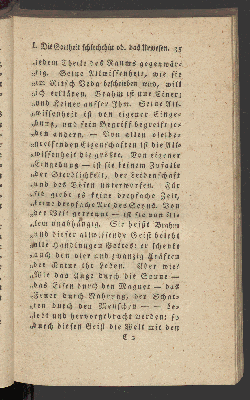 I. Die Gottheit schlechthin od. das Urwesen. 35
„jedem Theile des Raums gegenwär-
„tig. Seine Allwissenheit, wie sie
„im Ritsch Veda beschrieben wird, will
„ich erklären. Brahm ist nur Einer;
„und Keiner ausser Ihm. Seine All-
„wissenheit ist den eigener Einge-
„bung, und sein Begriff begreift je-
„den andern. — Von allen allwis-
„senden Eigenschaften ist die All-
„wissenheit die größte. Von eigener
„Eingebung — ist sie keinem Zufalle
„der Sterblichkeit, der Leidenschaft
„und des Bösen unterworfen. Für
„sie giebt es keine dreyfache Zeit,
„keine dreyfache Art des Seyns. Von
„der Welt getrennt — ist sie von Al-
„lem unabhängig. Sie heißt Brahm
„und dieser allwissende Geist belebt
„alle Handlungen Gottes: er schenkt
„auch den vier und zwanzig Kräften
„der Natur ihr Leben. Aber wie?
„Wie das Auge durch die Sonne —
„das Eisen durch den Magnet — das
„Feuer durch Nahrung, der Schat-
„ten durch den Menschen — — be-
„lebt und hervorgebracht werden: so
„durch diesen Geist die Welt mit den
C 2